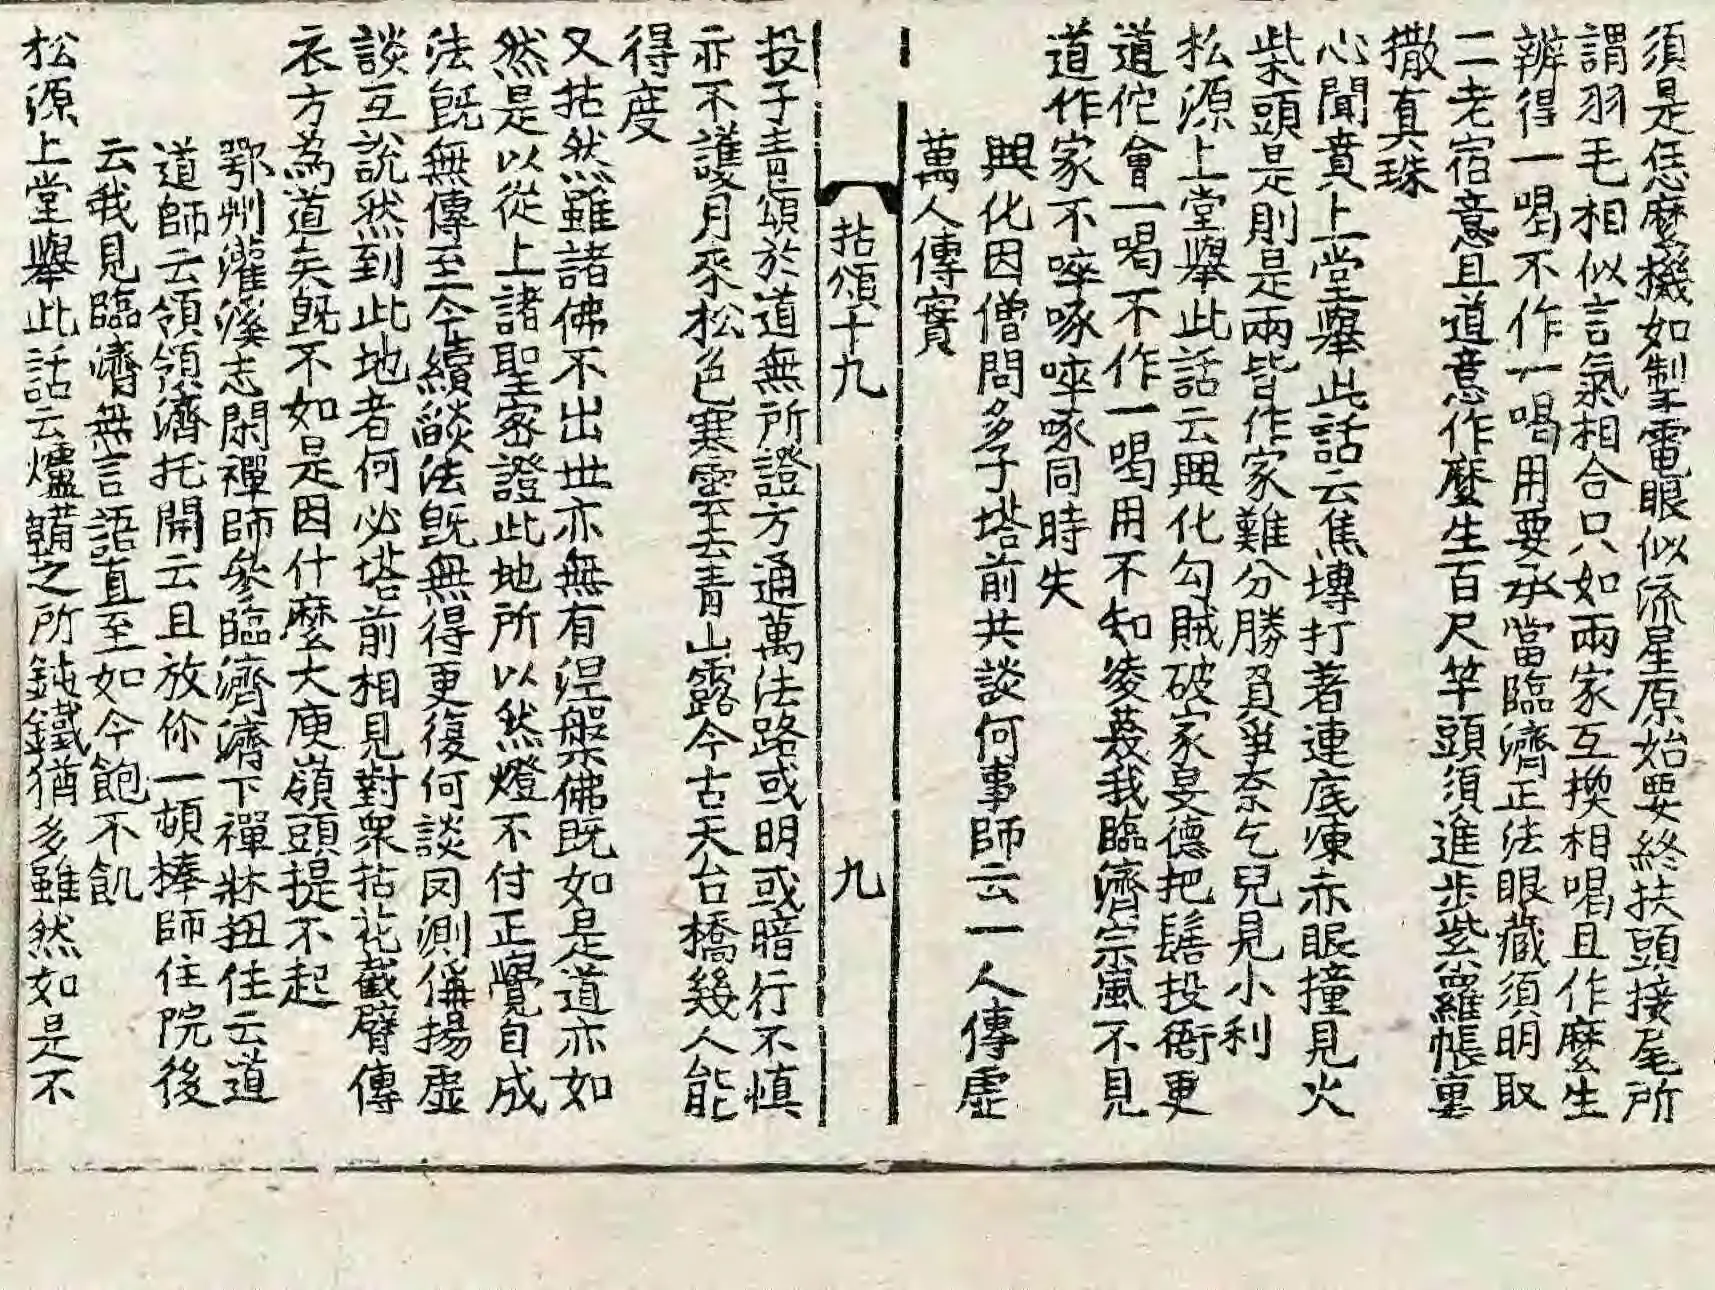 須是恁麽機如掣電眼似流星原始要終扶頭接尾所
謂羽毛相似言氣相合只如兩家互換相喝且作麽生
辨得一喝不作一喝用要承當臨濟正法眼藏須明取
二老宿意且道意作麽生百尺竿頭須進步紫羅帳裏
撒真珠
心聞賁上堂舉此話云焦塼打著連底凍赤眼撞見火
柴頭是則是兩皆作家難分勝負爭奈乞兒見小利
松源上堂舉此話云興化勾賊破家旻德把髻投衙更
道佗會一喝不作一喝用不知凌蔑我臨濟宗風不見
道作家不啐啄啐啄同時失
興化因僧問多子塔前共談何事師云一人傳虛
萬人傳實
拈頌十九
九
投子青頌於道無所證方通萬法路或明或暗行不慎
亦不護月來松色寒雲去青山露今古天台橋幾人能
得度
又拈然雖諸佛不出世亦無有涅槃佛既如是道亦如
然是以從上諸聖密證此地所以然燈不付正覺自成
法旣無傳至今續燄法旣無得更復何談罔測偁揚虛
談互說然到此地者何必塔前相見對衆拈花截臂傳
衣方為道矣旣不如是因什麽大庾嶺頭提不起
鄂州灌溪志閑禪師參臨濟濟下禪牀扭住云道
道師云領領濟托開云且放你一頓棒師住院後
云我見臨濟無言語直至如今飽不飢
松源上堂舉此話云爐鞴之所鈍鐵猶多雖然如是不